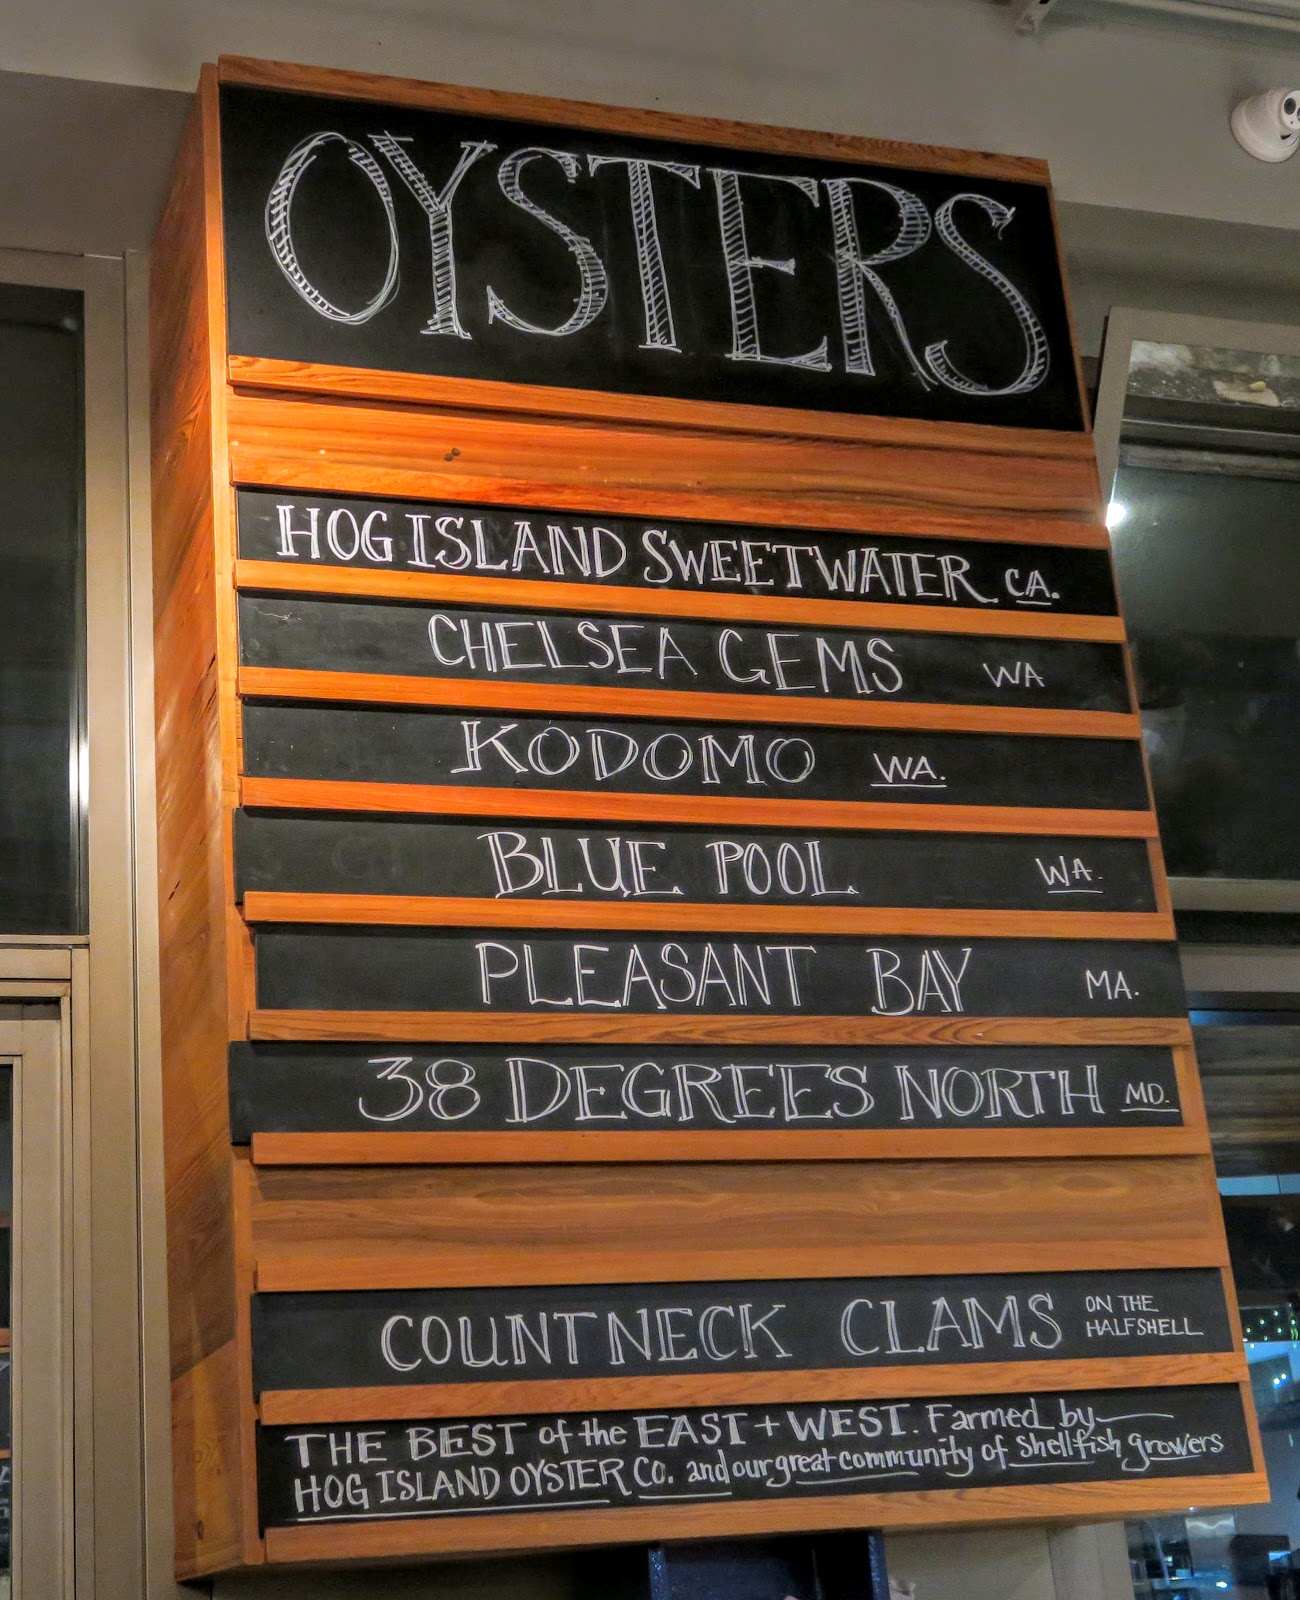 OYSTERS
HOG ISLAND SWEETWATER CA.
CHELSEA GEMS WA
KODOMO WA.
BLUE POOL WA.
PLEASANT BAY MA.
38 DEGREES NORTH MD.
COUNTNECK CLAMS ON THE
HALFSHELL
THE BEST of the EAST + WEST. Farmed by
HOG ISLAND OYSTER CO. and our great community of shellfish growers